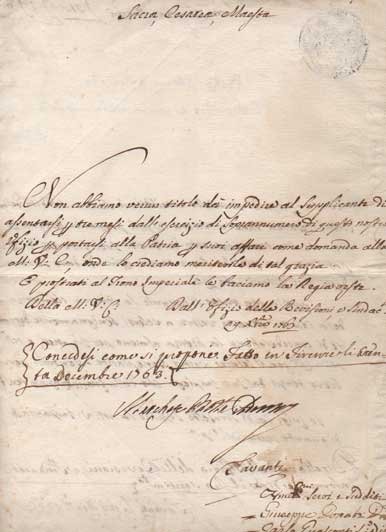 Sacra, Cesarea, Maestà
Non abbiamo verun titolo da impedire al Supplicante di
assentarsi p tre mesi dall' esercizio di Soprannumero di questo nostro
Offizio p portarsi alla Patria p suoi affari come domanda alla
M. V. C., onde lo crediamo meritevole di tal grazia
E prostrati al Trono Imperiale le facciamo la Regia veste.
Della M. V. C. Dall' Offizio delle e Sindac
1763
Concedesi come si propone. Fatto in Firenze li Tren-
ta Decembre 1763.
Servi e Sudditi
Giuseppe